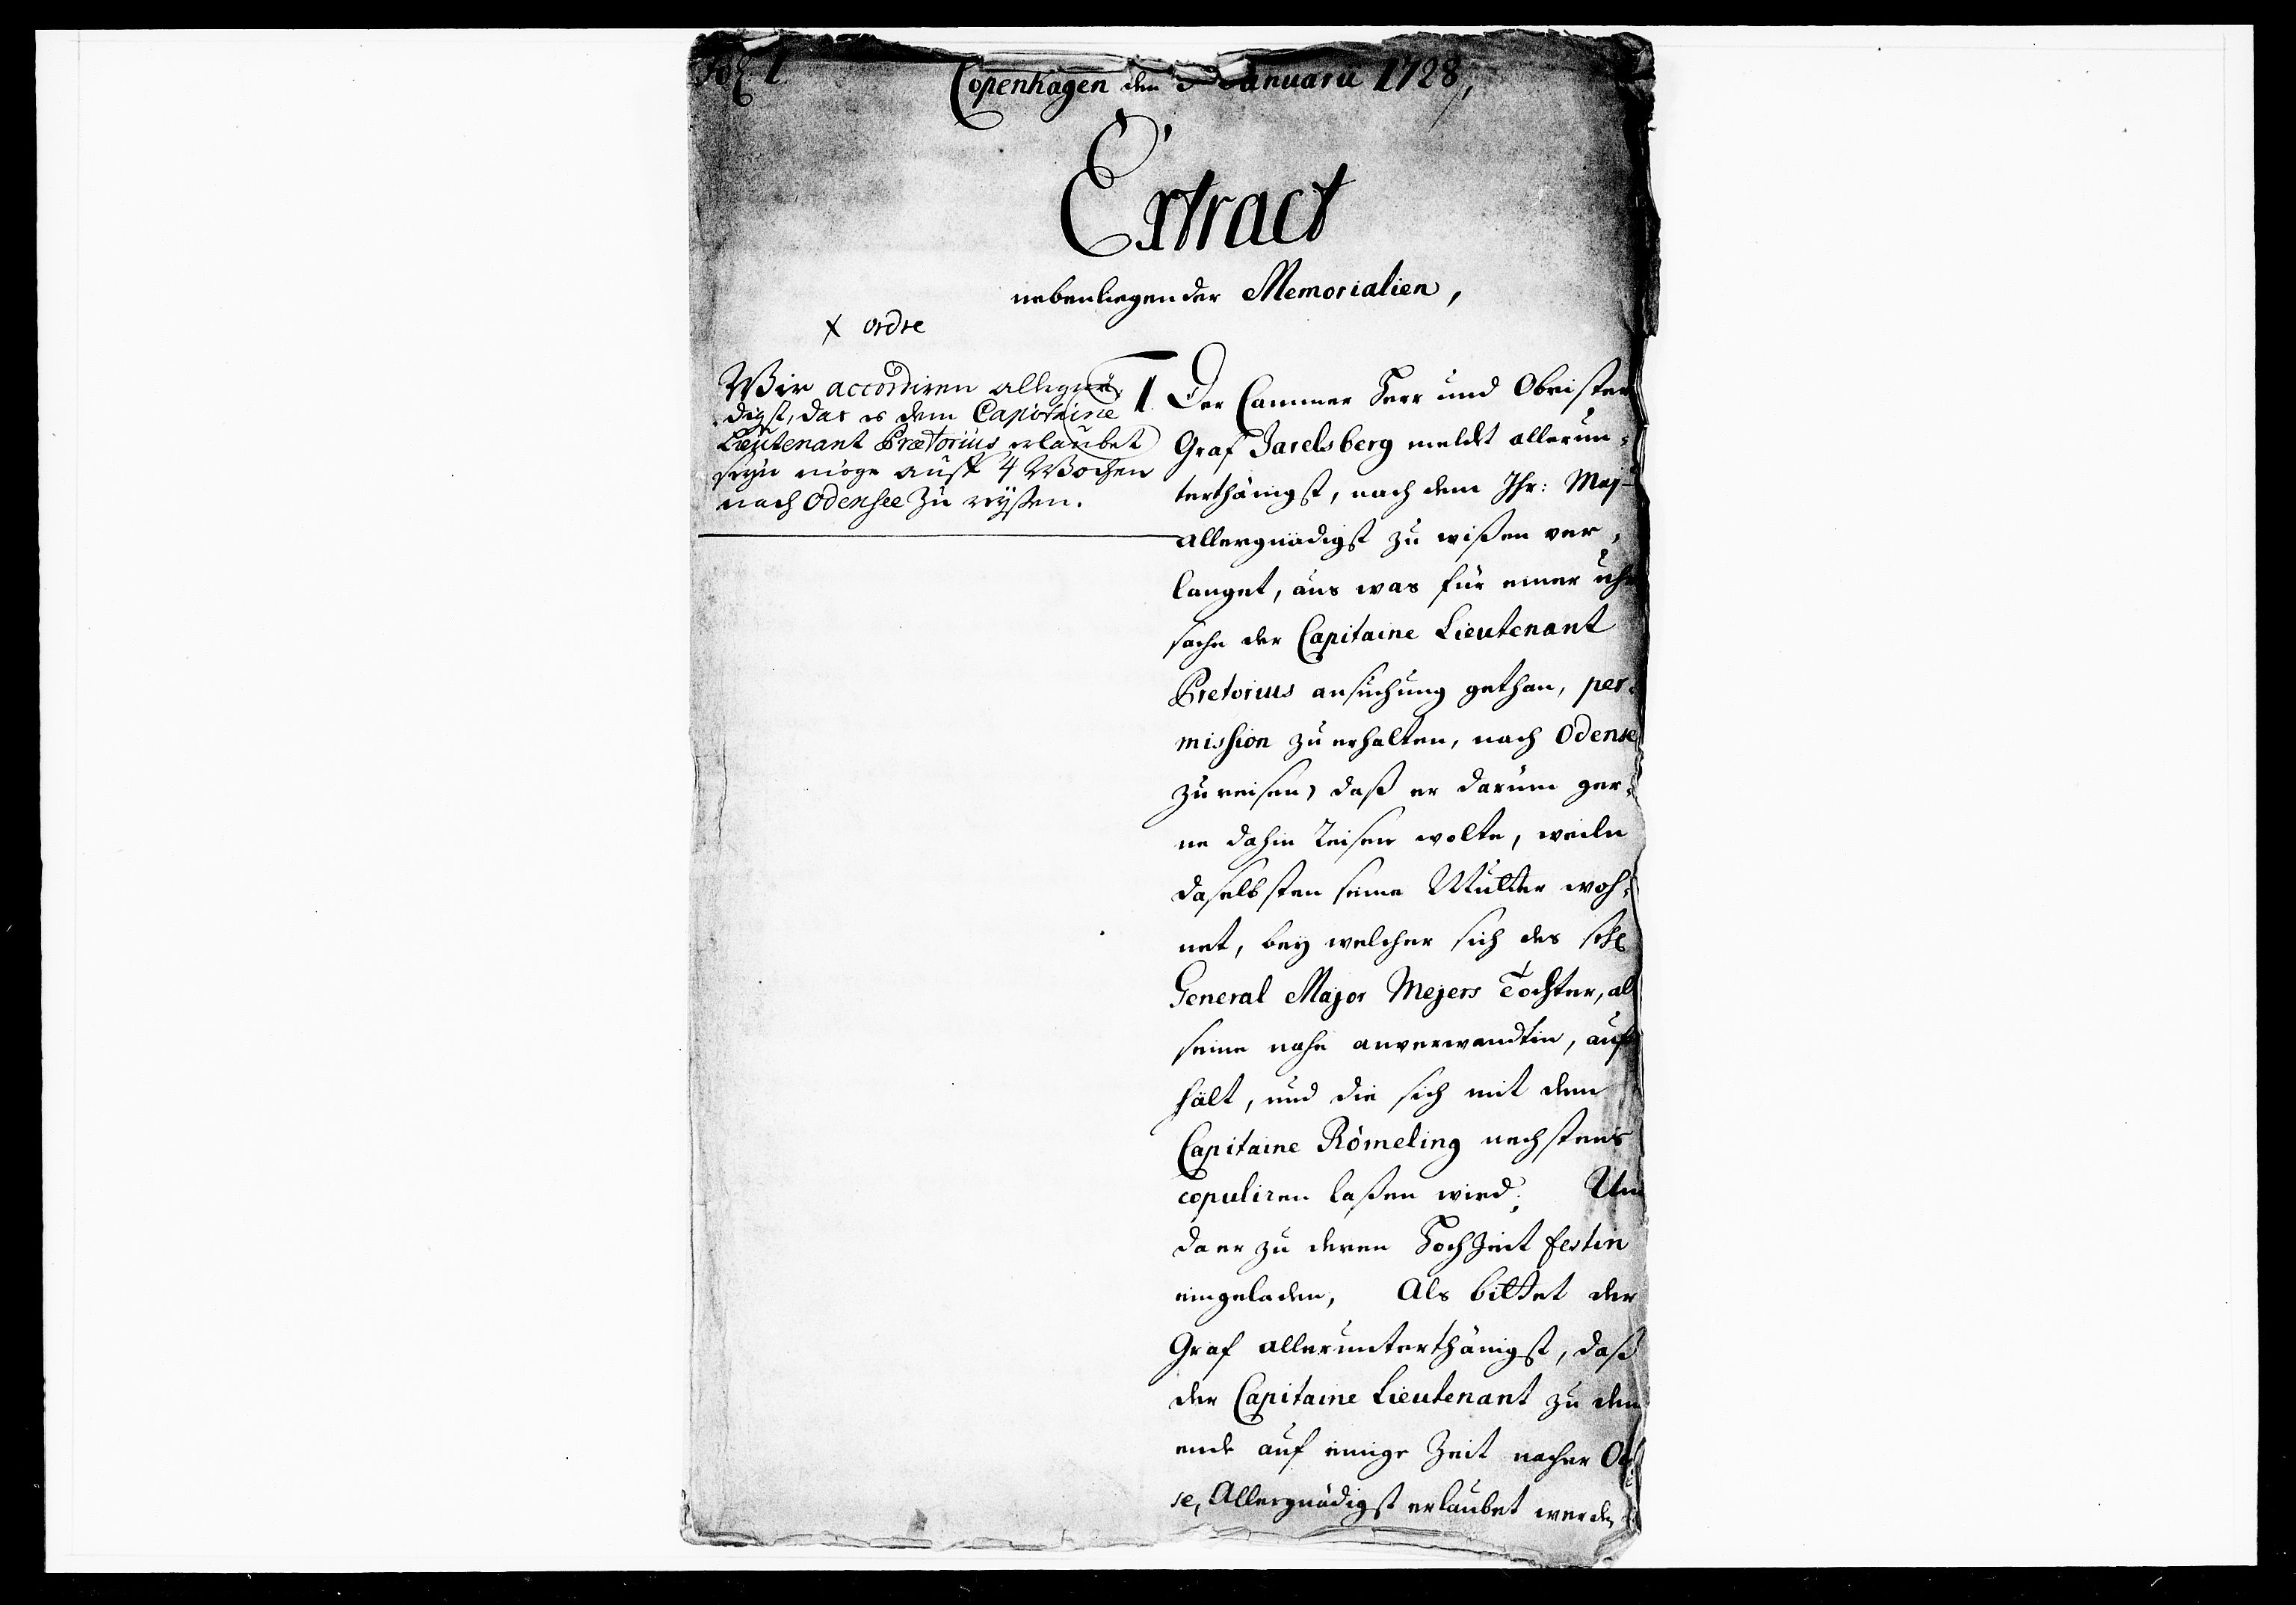 Copenhagen den Januarii 1728,
Extract
nebenliegender Memorialien,
x ordre
Wir accordiren allergnä-
digst, das es dem Capitaine
Lieutenant Prætorius erlaubet
seyn möge auff 4 Wochen
nach Odensee zu reyßen.
1. Der Cammer Herr und Obrister
Graf Jarelsberg meldt allerun-
terthänigst, nach dem Ihr: Maj-
Allergnädigst zu wißen ver-
langet, aus was für einer uhr
sache der Capitaine Lieutenant
Pretorius ansuchung gethan, per-
mission zu erhalten, nach Odense
zu reisen, daß er darum ger-
ne dahin Reisen wolte, weiln
daselbsten seine Mutter woh-
net, bey welcher sich des
General Major Mejers Tochter, als
seine nahe anverwandtin, auf
hält, und die sich mit dem
Capitaine Römeling nechstens
copuliren laßen wird; Und
da er zu deren HochZeit festin
eingeladen, Als bittet der
Graf allerunterthänigst, daß
der Capitaine Lieutenant zu dem
ende auf einige Zeit nacher Oden-
se, Allergnädigst erlaubet werden